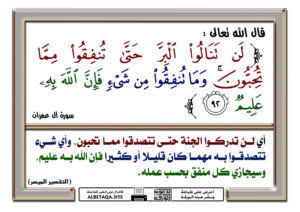 قال الله تعالى :
﴿ لَن تَنَالُواْ ٱلْبِرَّ حَتَّىٰ تُنفِقُواْ مِمَّا
تُحِبُّونَۚ وَمَا تُنفِقُواْ مِن شَىْءٍ فَإِنَّ ٱللَّهَ بِهِۦ
عَلِيمٌ ٩٢ ﴾
سورة آل عمران
أي لن تدركوا الجنة حتى تتصدقوا مما تحبون، وأي شيء
تتصدقوا به مهما كان قليلا أو كثيرا فإن الله به عليم،
وسيجازي كل منفق بحسب عمله.
(التفسير الميسر)
ALBETAQA.SITE